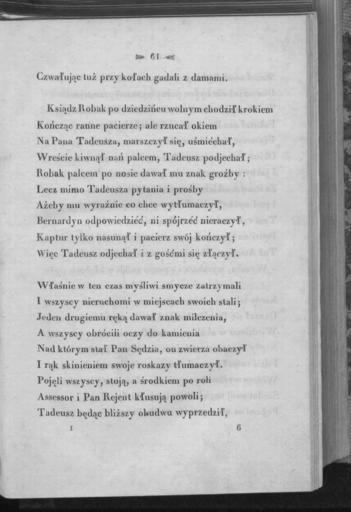 61
Czwałując tuż przy kołach gadali z damami.
Ksiądz Robak po dziedzińcu wolnym chodził krokiem
Kończąc ranne pacierze; ale rzucał okiem
Na Pana Tadeusza, marszczył się, uśmiéchał,
Wreście kiwnął nań palcem, Tadeusz podjechał;
Robak palcem po nosie dawał mu znak groźby:
Lecz mimo Tadeusza pytania i prośby
Ażeby mu wyraźnie co chce wytłumaczył,
Bernardyn odpowiedziéć, ni spójrzéć nieraczył,
Kaptur tylko nasunął i pacierz swój kończył;
Więc Tadeusz odjechał i z gośćmi się złączył.
Właśnie w ten czas myśliwi smycze zatrzymali
I wszyscy nieruchomi w miejscach swoich stali;
Jeden drugiemu ręką dawał znak milczenia,
A wszyscy obrócili oczy do kamienia
Nad którym stał Pan Sędzia, on zwierza obaczył
I rąk skinieniem swoje roskazy tłumaczył.
Pojęli wszyscy, stoją, a środkiem po roli
Assessor i Pan Rejent kłusują powoli;
Tadeusz będąc bliższy obudwu wyprzedził,
I 6